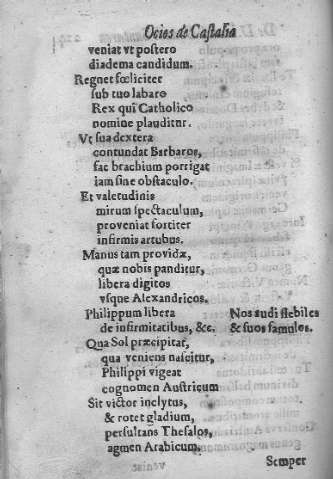 Ocios de Castalia
veniat vt postero
diadema candidum.
Regnet fœliciter
sub tuo labaro
Rex qui Catholico
nomine plauditur.
Vt sua dextera
contundat Barbaros,
fac brachium porrigat
iam sine obstaculo.
Et valetudinis
mirum spectaculum,
proveniat fortiter
infirmis artubus.
Manus tam providæ,
quæ nobis panditur,
libera digitos
vsque Alexandricos.
Philippum libera Nos audi flebiles
de infirmitatibus, &c. & suos famulos.
Qua Sol præcipitat,
qua veniens nascitur,
Philippi vigeat
cognomen Austricum
Sit victor inclytus,
& rotet gladium,
persultans Thesalos,
agmen Arabicum.
Semper